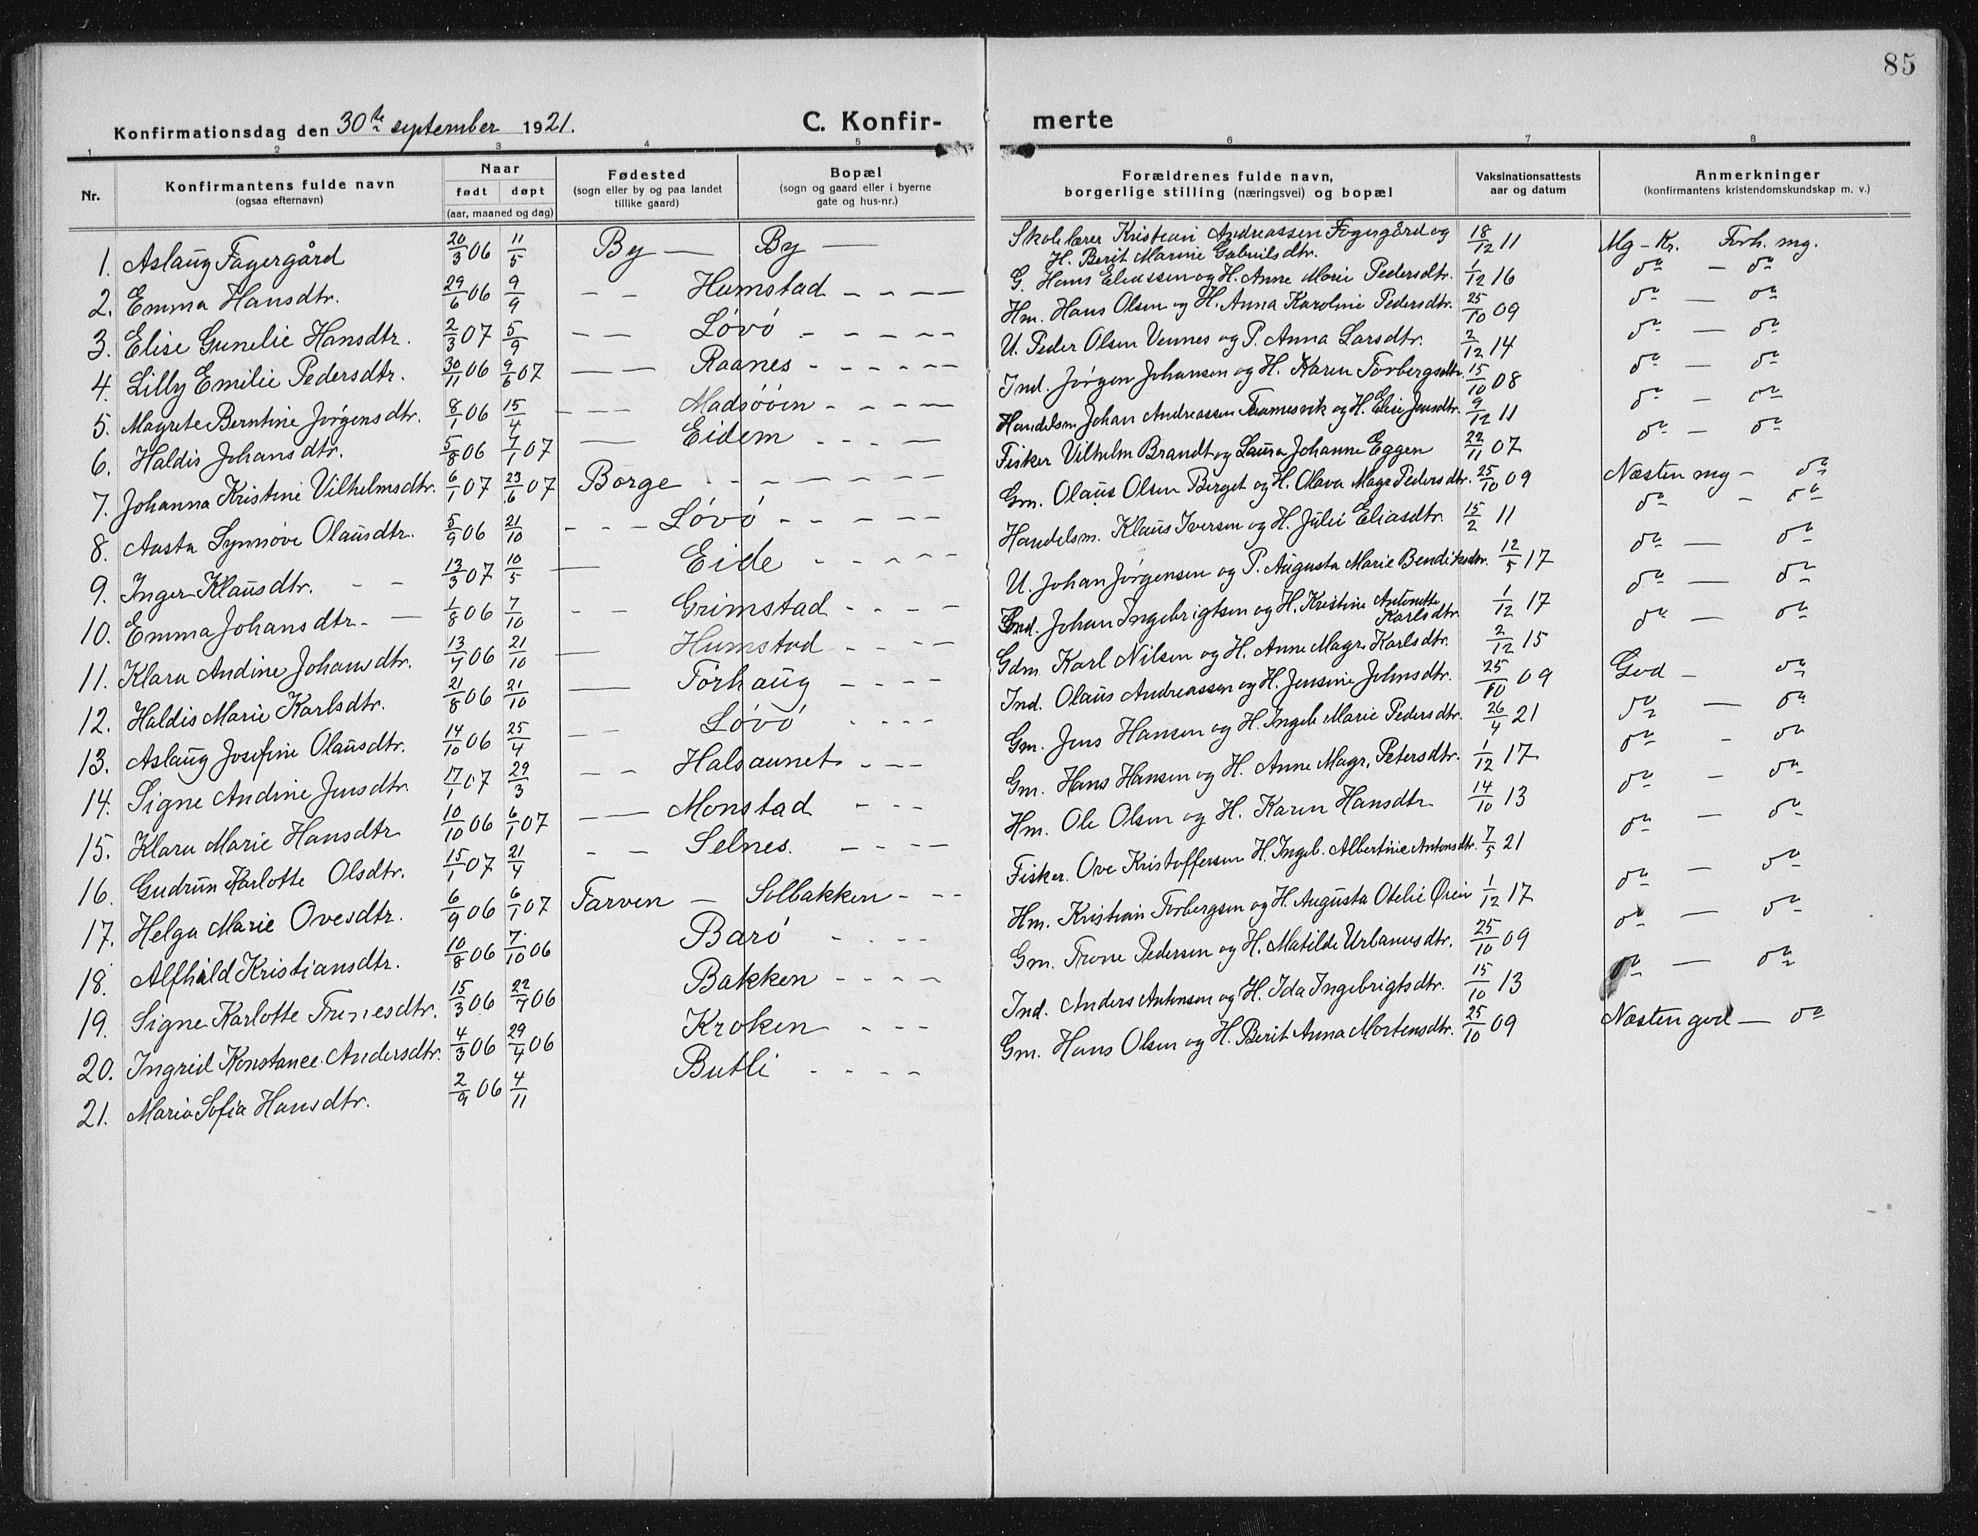 85
Konfirmationsdag den 30te september 1921.
C. Konfir-
merte
1 2 3 4 5 6 7 8
Nr.
Konfirmantens fulde navn
(ogsaa efternavn)
Naar
født døpt
(aar, maaned og dag)
Fødested
(sogn eller by og paa landet
tillike gaard)
Bopæl
(sogn og gaard eller i byerne
gate og hus-nr.)
Forældrenes fulde navn,
borgerlige stilling (næringsvei) og bopæl
Vaksinationsattests
aar og datum
Anmerkninger
(konfirmantens kristendomskundskap m. v.)
1. Aslaug Fagergård 20/3 06 11/5 By — By — Skolelærer Kristian Andreassen Fagergård og H. Berit Marine Gabrielsdtr. 18/12 11 Mg – Kr. Forh. mg.
2. Emma Hansdtr. 29/6 06 9/9 – – Humstad – – – G. Hans Eliassen og H. Anne Marie Pedersdtr. 1/12 16 do – do
3. Elise Gunelie Hansdtr. 2/3 07 5/9 – – Løvø – – – – – Hm. Hans Olsen og H. Anna Karoline Pedersdtr. 25/10 09 do – do
4. Lilly Emilie Pedersdtr. 30/11 06 9/6 07 – – Raanes – – – – – – U. Peder Olsen Vennes og P. Anna Larsdtr. 2/12 14 do – do
5. Magrete Berntine Jørgensdtr. 8/1 06 15/4 – – – Madsøöien – – – – Ind. Jørgen Johansen og H. Karen Torbergsdtr. 15/10 08 do – do
6. Haldis Johansdtr. 5/8 06 7/1 07 — Eidem – – – – Handelsm Johan Andreassen og H. Elise Jensdtr. 9/12 11 do – do
7. Johanna Kristine Vilhelmsdtr. 6/1 07 23/6 07 Borge – – – – – – – Fisker Vilhelm Brandt og Laura Johanne Eggen 22/11 07 do – do
8. Aasta Synnøve Olausdtr. 5/9 06 21/10 – – – Løvø – – – – Gm. Olaus Olsen Berget og H. Olava Magr. Pedersdtr. 25/10 09 Næsten mg – do
9. Inger Klausdtr. – – 13/3 07 10/5 — Eide – – – – Handelsm. Klaus Iversen og H. Julie Eliasdtr. 15/2 11 do – do
10. Emma Johansdtr. – — 1/8 06 7/10 – – Grimstad – – – – U. Johan Jørgensen og P. Augusta Marie Bendiksdtr. 12/5 17 do – do
11. Klara Andine Johansdtr. 13/7 06 21/10 — Humstad – – – – Ind. Johan Ingebrigtsen og H. Kristine Antonette Karlsdtr. 1/12 17 do – do
12. Haldis Marie Karlsdtr. 21/8 06 21/10 — Torhaug – – – – Gdm. Karl Nilsen og H. Anne Magr. Karlsdtr. 2/12 15 do – do
13. Aslaug Josefine Olausdtr. 14/10 06 25/4 – – Løvø – – – – Ind. Olaus Andreassen og H. Jensine Johnsdtr. 25/10 09 God – do
14. Signe Andine Jensdtr. 17/1 07 29/3 – – Halsaunet – – – Gm. Jens Hansen og H. Ingeb. Marie Pedersdtr. 26/4 21 do – do
15. Klara Marie Hansdtr 10/10 06 6/1 07 – — Monstad – – – Gm. Hans Hansen og H. Anne Magr. Petersdtr. 1/12 17 do – do
16. Gudrun Karlotte Olsdtr. 15/1 07 21/4 – – Selnes. – – – – Hm. Ole Olsen og H. Karen Hansdtr. 14/10 13 do – do
17. Helga Marie Ovesdtr. 6/9 06 6/1 07 Tarven – Solbakken – – – Fisker. Ove Kristoffersen H. Ingeb. Albertine Antonsdtr. 7/5 21 do – do
18. Alfhild Kristiansdtr. 10/8 06 7/10 06 Barø – – – – Hm. Kristian Torbergsen og H. Augusta Otelie Øien 1/12 17 do – do
19. Signe Karlotte Tronesdtr. 15/3 06 22/7 06 Bakken – – – – Gm. Trone Pedersen og H. Matilde Urbanusdtr. 25/10 09 do – do
20. Ingrid Konstance Andersdtr. 4/3 06 29/4 06 Kroken – – – Ind. Anders Antonsen og H. Ida Ingebrigtsdtr. 15/10 13 do – do
21. Maria Sofia Hansdtr. 2/9 06 4/11 Butli – – – – Gm. Hans Olsen og H. Berit Anna Mortensdtr. 25/10 09 Næsten god – do